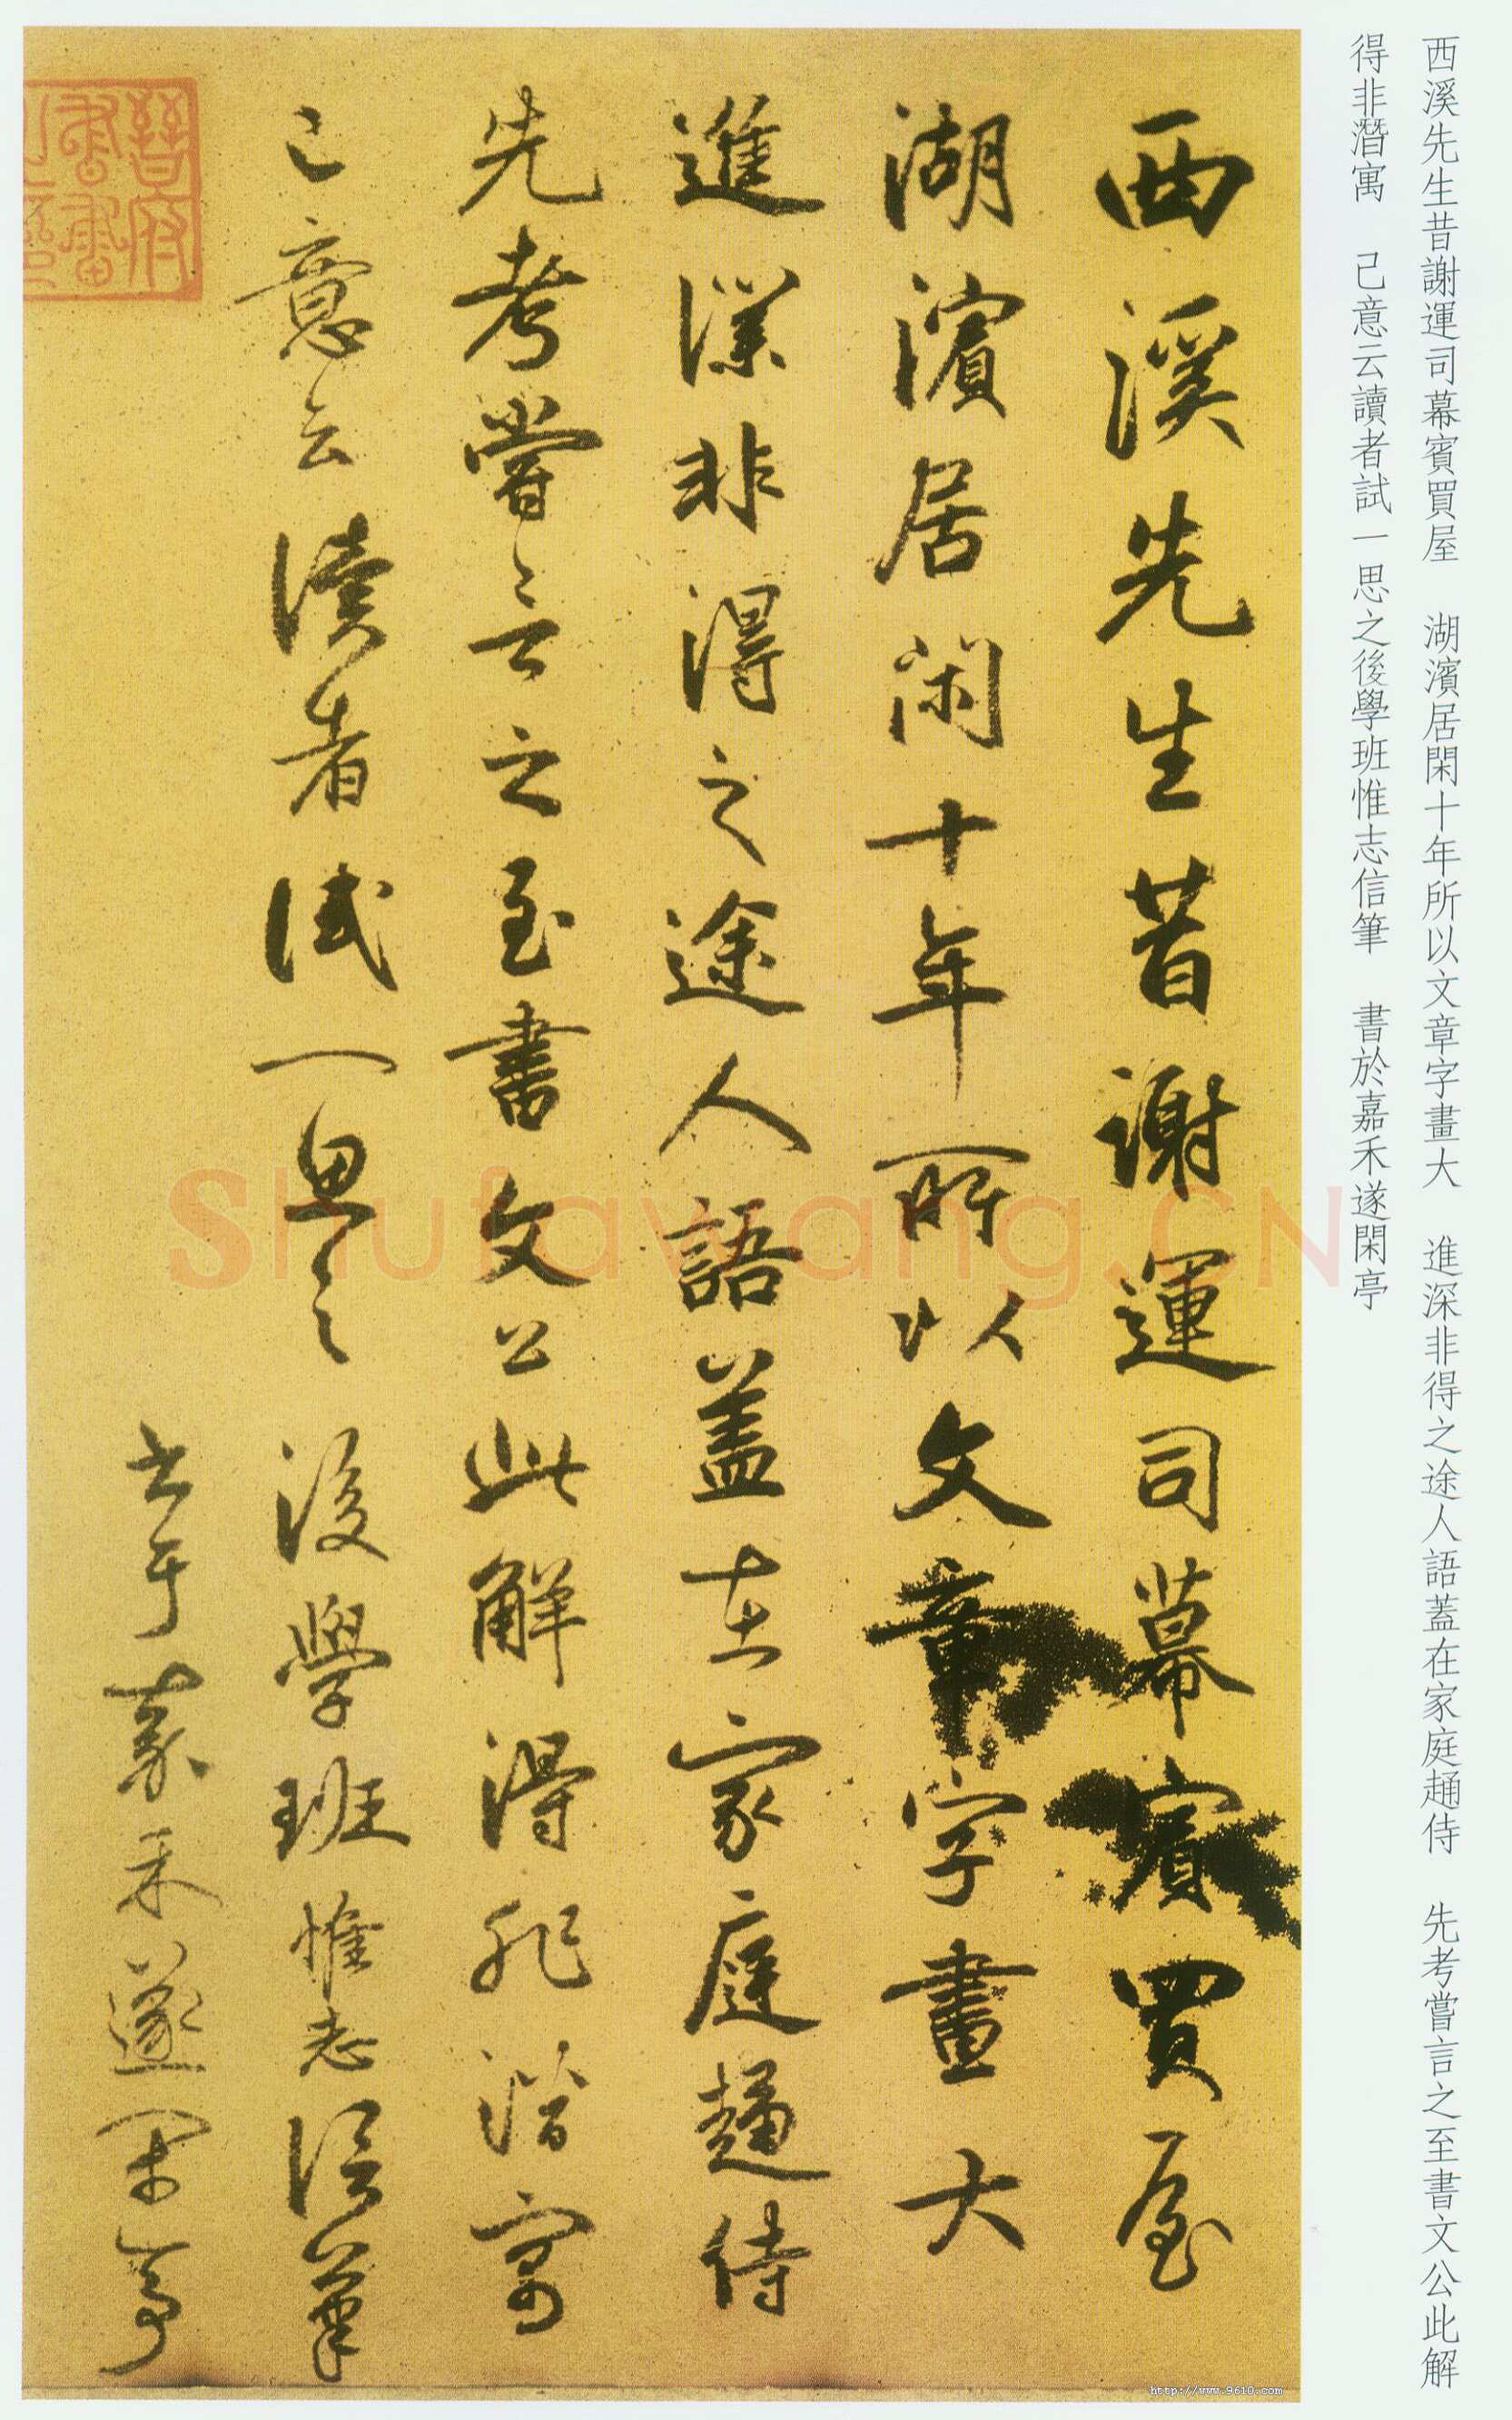 西溪先生昔謝運司幕賓買屋　湖濱居閑十年所以文章字畫大　進深非得之途人語蓋在家庭趨侍　先考嘗言之至書文公此解
得非潛寓　己意云讀者試一思之後學班惟志信筆　書於嘉禾遂閑亭
西溪先生昔謝運司幕賓買屋
湖濱居閑十年所以文章字畫大
進深非得之途人語蓋在家庭趨侍
先考嘗言之至書文公此解得非潛寓
己意云讀者試一思之後學班惟志信筆
書于嘉禾遂閑亭
晉府
書畫
shufawang.CN
http://www.9610.com